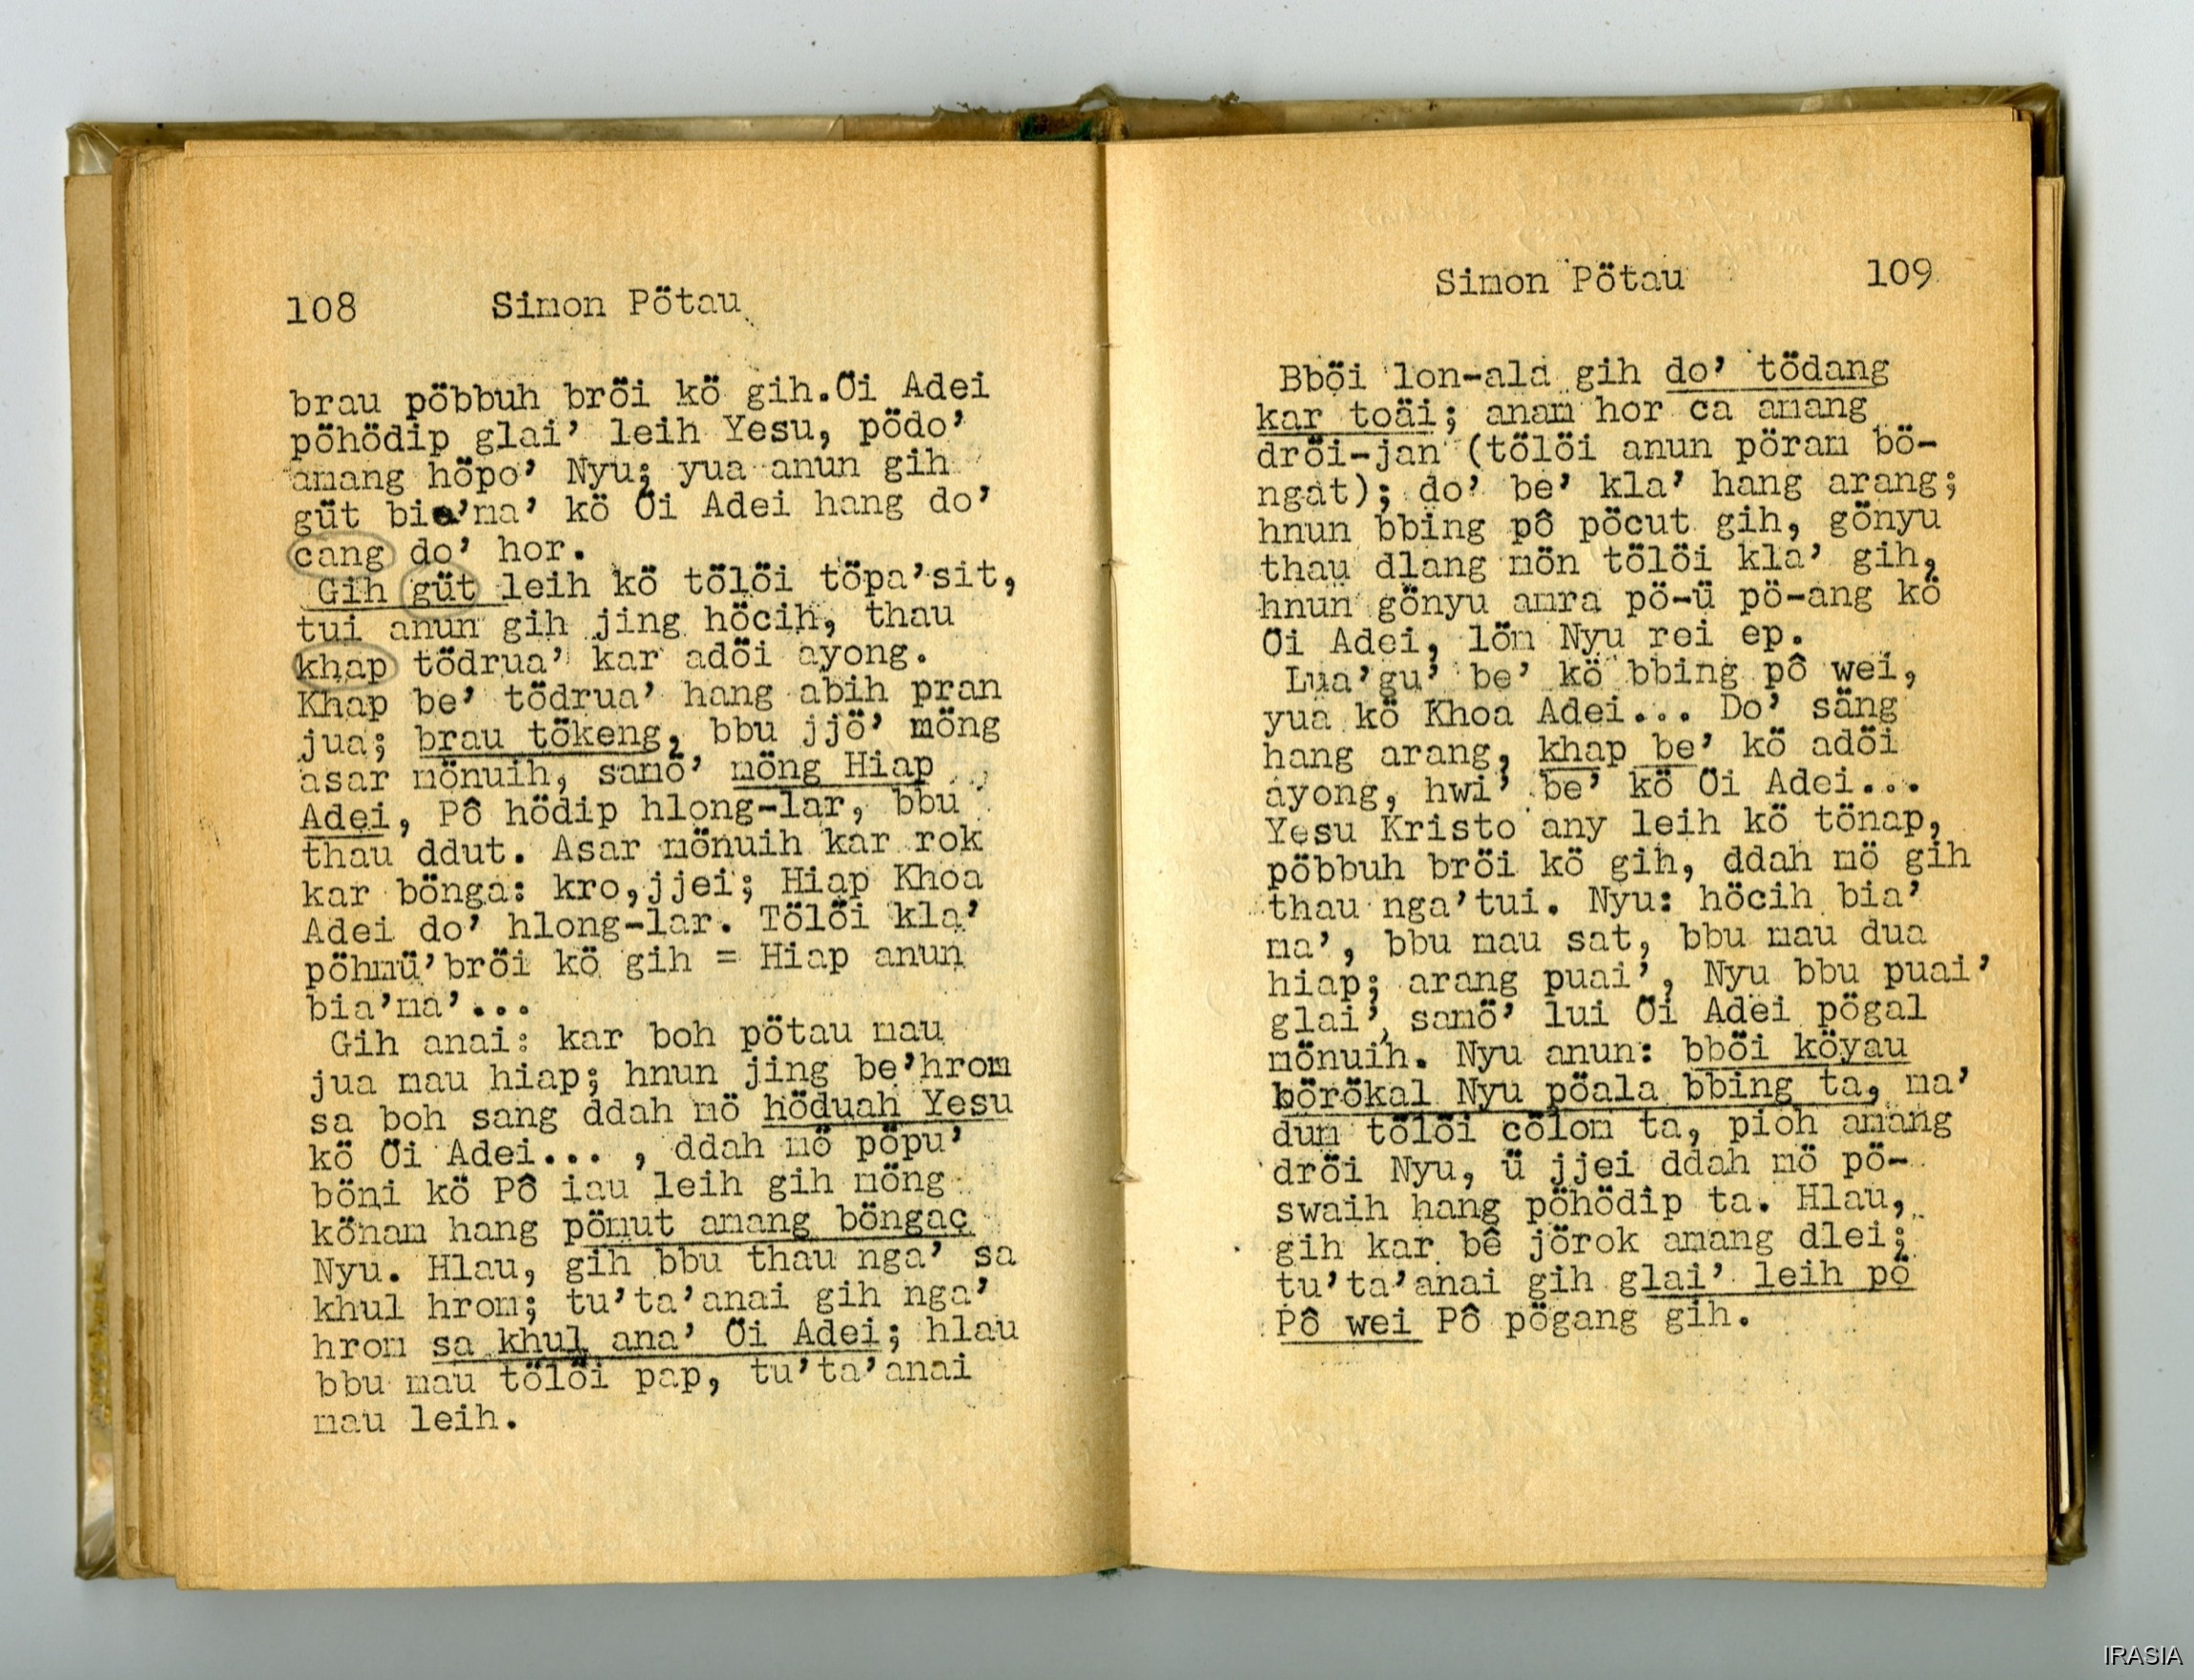 108 Simon Pötau
brau pöbbuh brŏ̈i kö gih.Ŏ̈i Adei
pöhödip glai’ leih Yesu, pödo’
amang hŏ̈po’ Nyu; yua anun gih
güt bia’ma’ kö Ŏ̈i Adei hang do’
cang do’ hor.
Gih güt leih kö tŏ̈lŏ̈i tŏ̈pa’sit,
tui anun gih jing höcih, thau
khap tödrua’ kar adŏ̈i ayong.
Khap be’ tödrua’ hang abih pran
jua; brau tökeng, bbu jjö’ möng
asar mönuih, samŏ̈’ möng Hiap
Adei, Pô hödip hlong-lar, bbu
thau ddut. Asar mönuih kar rok
kar bönga: kro,jjei; Hiap Khoa
Adei do’ hlong-lar. Tŏ̈lŏ̈i kla’
pöhmü’brŏ̈i kö gih = Hiap anun
bia’ma’...
Gih anai: kar boh pötau mau
jua mau hiap; hnun jing be’hrom
sa boh sang ddah mö höduah Yesu
kö Ŏ̈i Adei... , ddah mö pöpu’
böni kö Pô iau leih gih möng
könam hang pömut amang böngaç
Nyu. Hlau, gih bbu thau nga’ sa
khul hrom; tu’ta’anai gih nga’
hrom sa khul ana’ Ŏ̈i Adei; hlau
bbu mau tŏ̈lŏ̈i pap, tu’ta’anai
mau leih.
Simon Pötau 109
Bbŏ̈i lon-ala gih do’ tödang
kar toäi; anam hor ca amang
drŏ̈i-jan (tŏ̈lŏ̈i anun pöram bö-
ngat); do’ be’ kla’ hang arang;
hnun bbing pô pöcut gih, gönyu
thau dlang mön tŏ̈lŏ̈i kla’ gih,
hnun gönyu amra pö-ü pö-ang kö
Ŏ̈i Adei, lŏ̈m Nyu rei ep.
Lua’gu’ be’ kö bbing pô wei,
yua kö Khoa Adei... Do’ säng
hang arang, khap be’ kö adŏ̈i
ayong, hwi’ be’ kö Ŏ̈i Adei...
Yesu Kristo any leih kö tönap,
pöbbuh brŏ̈i kö gih, ddah mö gih
thau nga’tui. Nyu: höcih bia’
ma’, bbu mau sat, bbu mau dua
hiap; arang puai’, Nyu bbu puai’
glai’, samŏ̈’ lui Ŏ̈i Adei pögal
mönuih. Nyu anun: bbŏ̈i köyau
börŏ̈kal Nyu pöala bbing ta, ma’
dum tŏ̈lŏ̈i cŏ̈lom ta, pioh amang
drŏ̈i Nyu, ü jjei ddah mö pö-
swaih hang pöhödip ta. Hlau,
gih kar bê jörok amang dlei;
tu’ta’anai gih glai’ leih pö
Pô wei Pô pögang gih.
IRASIA